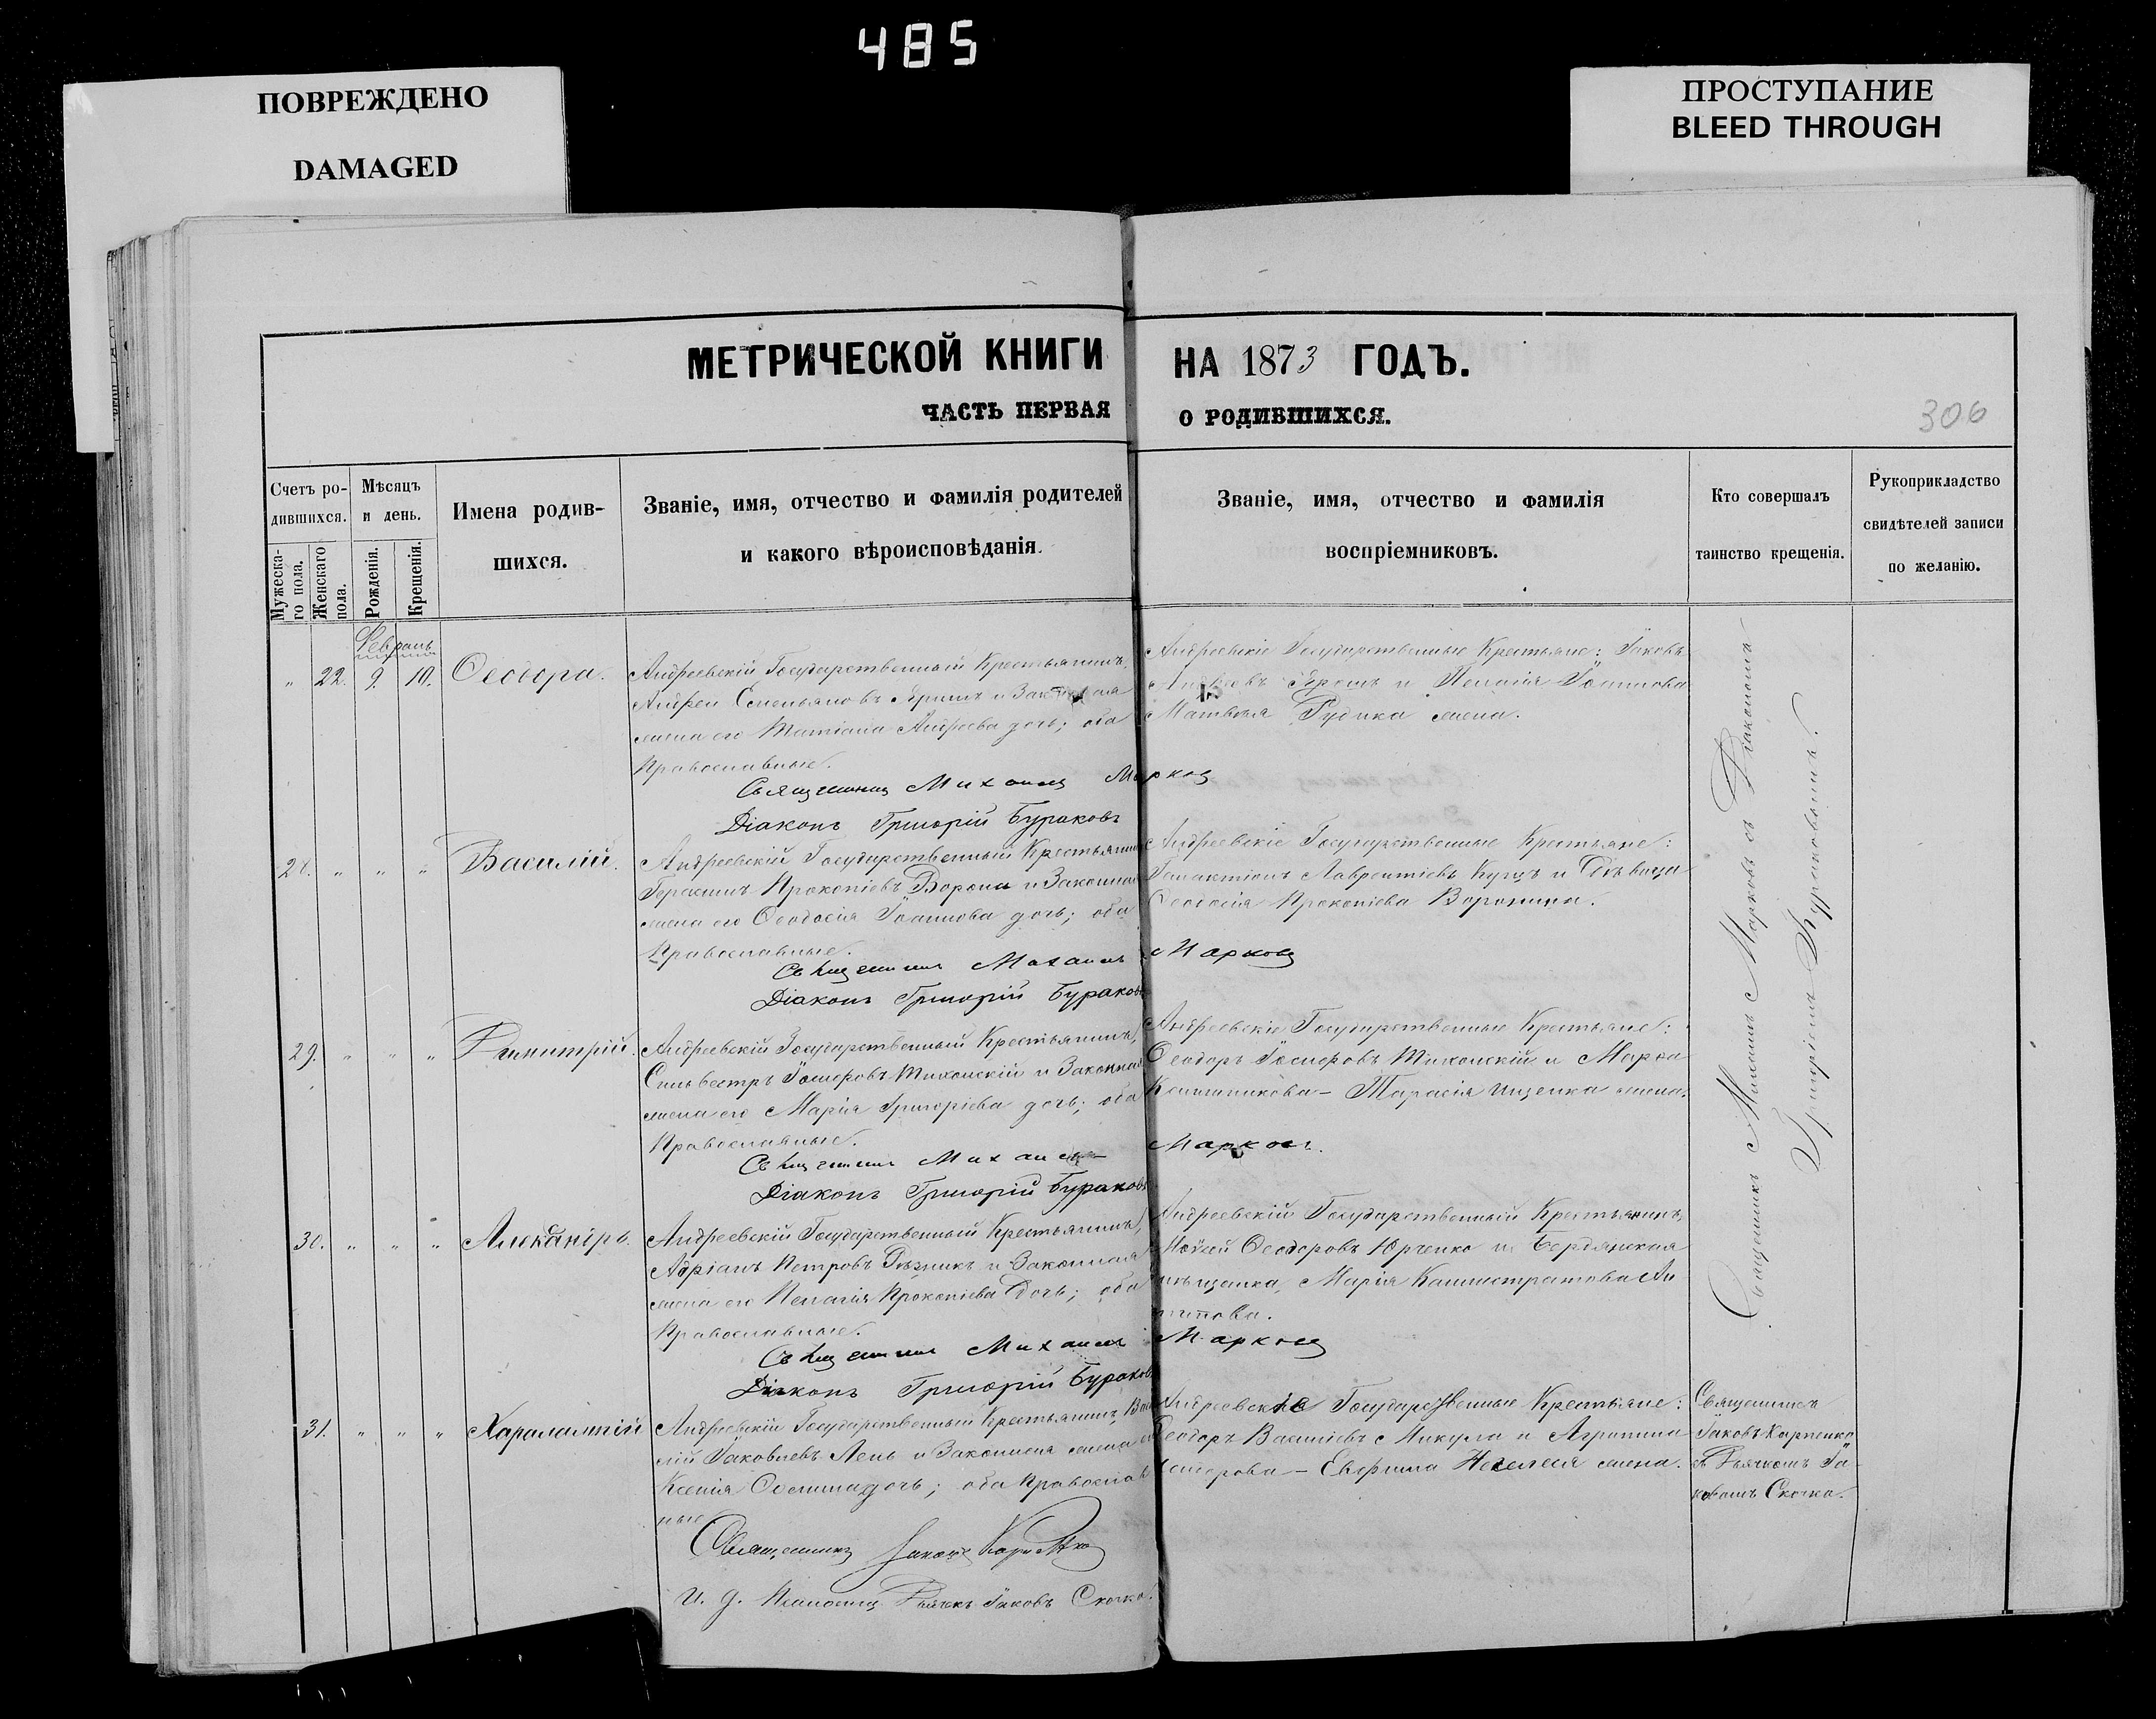 485
ПОВРЕЖДЕНО
DAMAGED
ПРОСТУПАНИЕ
BLEED THROUGH
МЕТРИЧЕСКОЙ КНИГИ НА 1873 ГОДЪ.
ЧАСТЬ ПЕРВАЯ О РОДИВШИХСЯ.
306
Счетъ ро-
дившихся.
Мужеска-
го пола.
Женскаго
пола.
Мѣсяцъ
и день.
Рожденія.
Крещенія.
Имена родив-
шихся.
Званіе, имя, отчество и фамилія родителей
и какого вѣроисповѣданія.
Званіе, имя, отчество и фамилія
воспріемниковъ.
Кто совершалъ
таинство крещенія.
Рукоприкладство
свидѣтелей записи
по желанію.
Февраль
" 22. 9. 10. Ѳеодора.
Андреевскій Государственный Крестьянинъ,
Андрей Емельяновъ и Законная
жена его Татіана Андреева дочь; оба
Православные.
Андреевскіе Государственные Крестьяне: Іаковъ
и Пелагія Іоаннова
Матвѣя Рудика жена.
Священникъ Михаилъ Марковъ
Діаконъ Григорій Бураковъ
28. " " " Василій.
Андреевскій Государственный Крестьянинъ
Герасимъ Прокопіевъ Ворона и Законная
жена его Ѳеодосія Іоаннова дочь; оба
Православные.
Андреевскіе Государственные Крестьяне:
Галактіонъ Лаврентіевъ Куцъ и Дѣвица
Ѳеодосія Прокопіева Воронина.
Священникъ Михаилъ Марковъ
Діаконъ Григорій Бураковъ
29. " " " Димитрій.
Андреевскій Государственный Крестьянинъ,
Сильвестръ Іосифовъ Тихонскій и Законная
жена его Марія Григоріева дочь; оба
Православные.
Андреевскіе Государственные Крестьяне:
Ѳеодоръ Іосифовъ Тихонскій и Марѳа
Тарасія Ищенка жена.
Священникъ Михаилъ Марковъ.
Діаконъ Григорій Бураковъ
30. " " " Александръ.
Андреевскій Государственный Крестьянинъ,
Адріанъ Петровъ Рѣзникъ и Законная
жена его Пелагія Прокопіева Дочь; оба
Православные.
Андреевскій Государственный Крестьянинъ
Моѵсей Ѳеодоровъ Юрченко и Бердянская
мѣщанка, Марія Каллистратова Ан
типова.
Священникъ Михаилъ Марковъ
Діаконъ Григорій Бураковъ
Священникъ Михаилъ Марковъ съ Діакономъ
Григоріемъ Бураковымъ.
31. " " " Харалампій
Андреевскій Государственный Крестьянинъ, Васи
лій Іаковлевъ Лень и Законная жена его
Ксенія дочь; оба Православ
ные.
Андреевскіе Государственные Крестьяне:
Ѳеодоръ Василіевъ Микула и Агрипина
Евфима жена.
Священникъ
Іаковъ Карпенко
съ Дьячкомъ Іа-
ковомъ Скочко.
Священникъ Іаковъ Карпенко
И. д. Псаломщ. Дьячекъ Іаковъ Скочко.